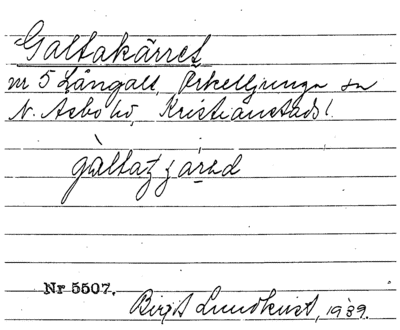 Galtakärret
nr 5 Långalt, Örkelljunga sn
N. Åsbo hd, Kristianstads l.
Nr 5507.
Birgit Lundkvist, 1939.